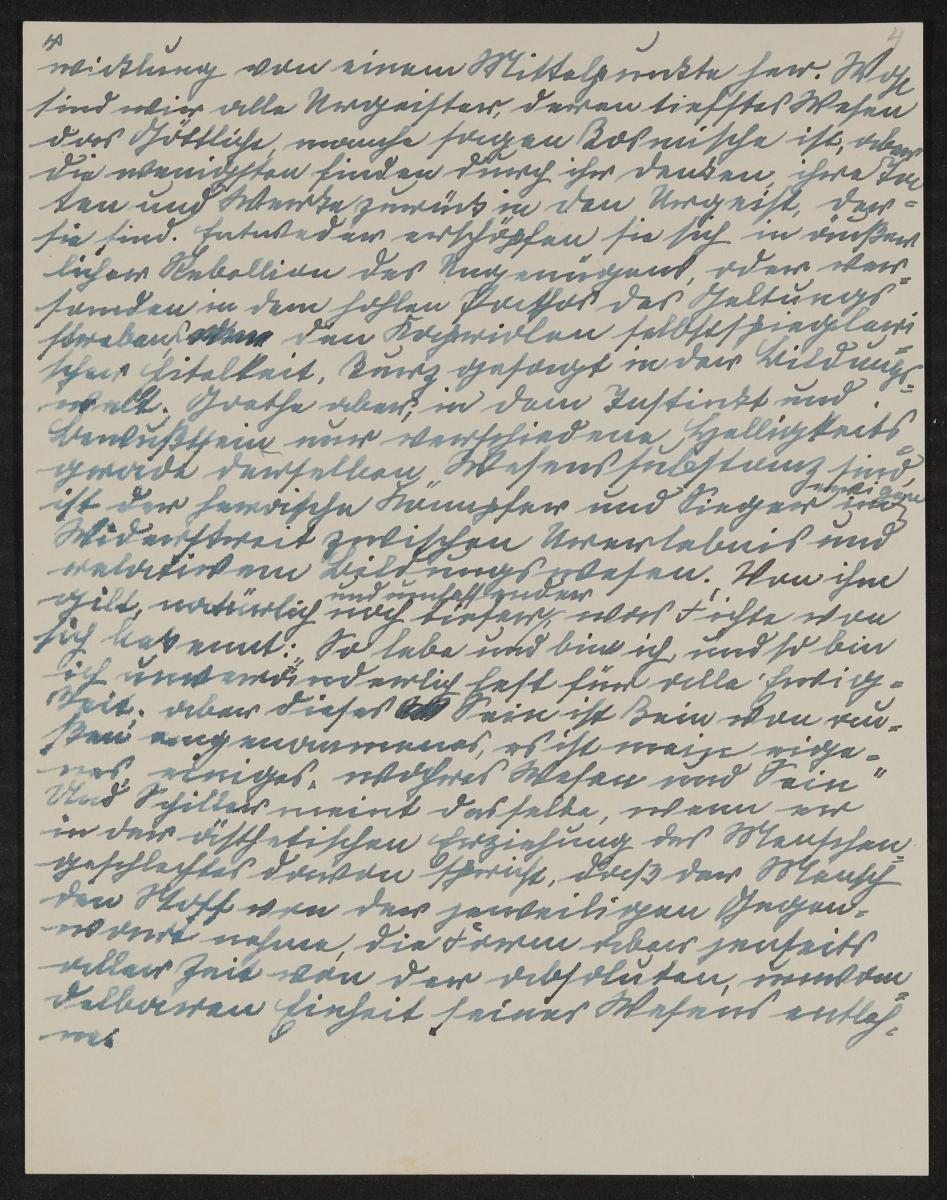 4 4
wicklung von einem Mittelpunkte her. Wohl
sind wir alle Urgeister, deren tiefstes Wesen
das Göttliche, manche sagen Kosmische ist, aber
die wenigsten finden durch ihr Denken, ihre Ta
ten und Werke zurück in den Urgeist, der
sie sind. Entweder erschöpfen sie sich in äußer
licher Rebellion des Ungenügens, oder ver-
sanden in dem hohlen Pathos des Geltungs-
strebens den selbstspiegleri
scher Eitelkeit, kurz gesagt in der Bildungs-
welt. Goethe aber, in dem Instinkt und
Bewußtsein nur verschiedene Helligkeits-
grade derselben Wesenssubstanz sind,
ist der heroische Kämpfer und Sieger im
ewigen
Widerstreit zwischen Urerlebnis und
relativem Bildungswesen. Von ihm
und umfassender
gilt, natürlich noch tiefer, was Fichte von
sich bekennt: So lebe und bin ich, und so bin
ich unveränderlich fest für alle Ewig-
keit; aber dieses Sein ist kein von au-
ßen angenommenes, es ist mein eige-
nes, einiges, wahres Wesen und Sein"
Und Schiller meint dasselbe, wenn er
in der ästhetischen Erziehung des Menschen-
geschlechtes davon spricht, daß der Mensch
den Stoff von der jeweiligen Gegen-
wart nehme, die Form aber jenseits
aller Zeit von der absoluten, unwan-
delbaren Einheit seines Wesens entleh-
ne.